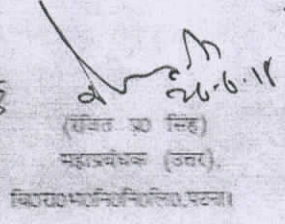 26.6.18
(रंजित प्र० सिंह)
महाप्रबंधक (उत्तर),
बि०रा०भ०नि०नि०लि०,पटना।